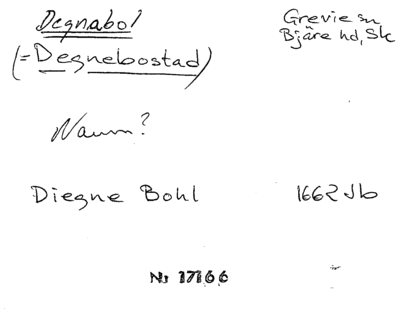 Degnabol
Grevie sn
(=Degnebostad)
Bjäre hd, Sk
Naum?
Diegne Bohl 1662 Jb
Nr 17166